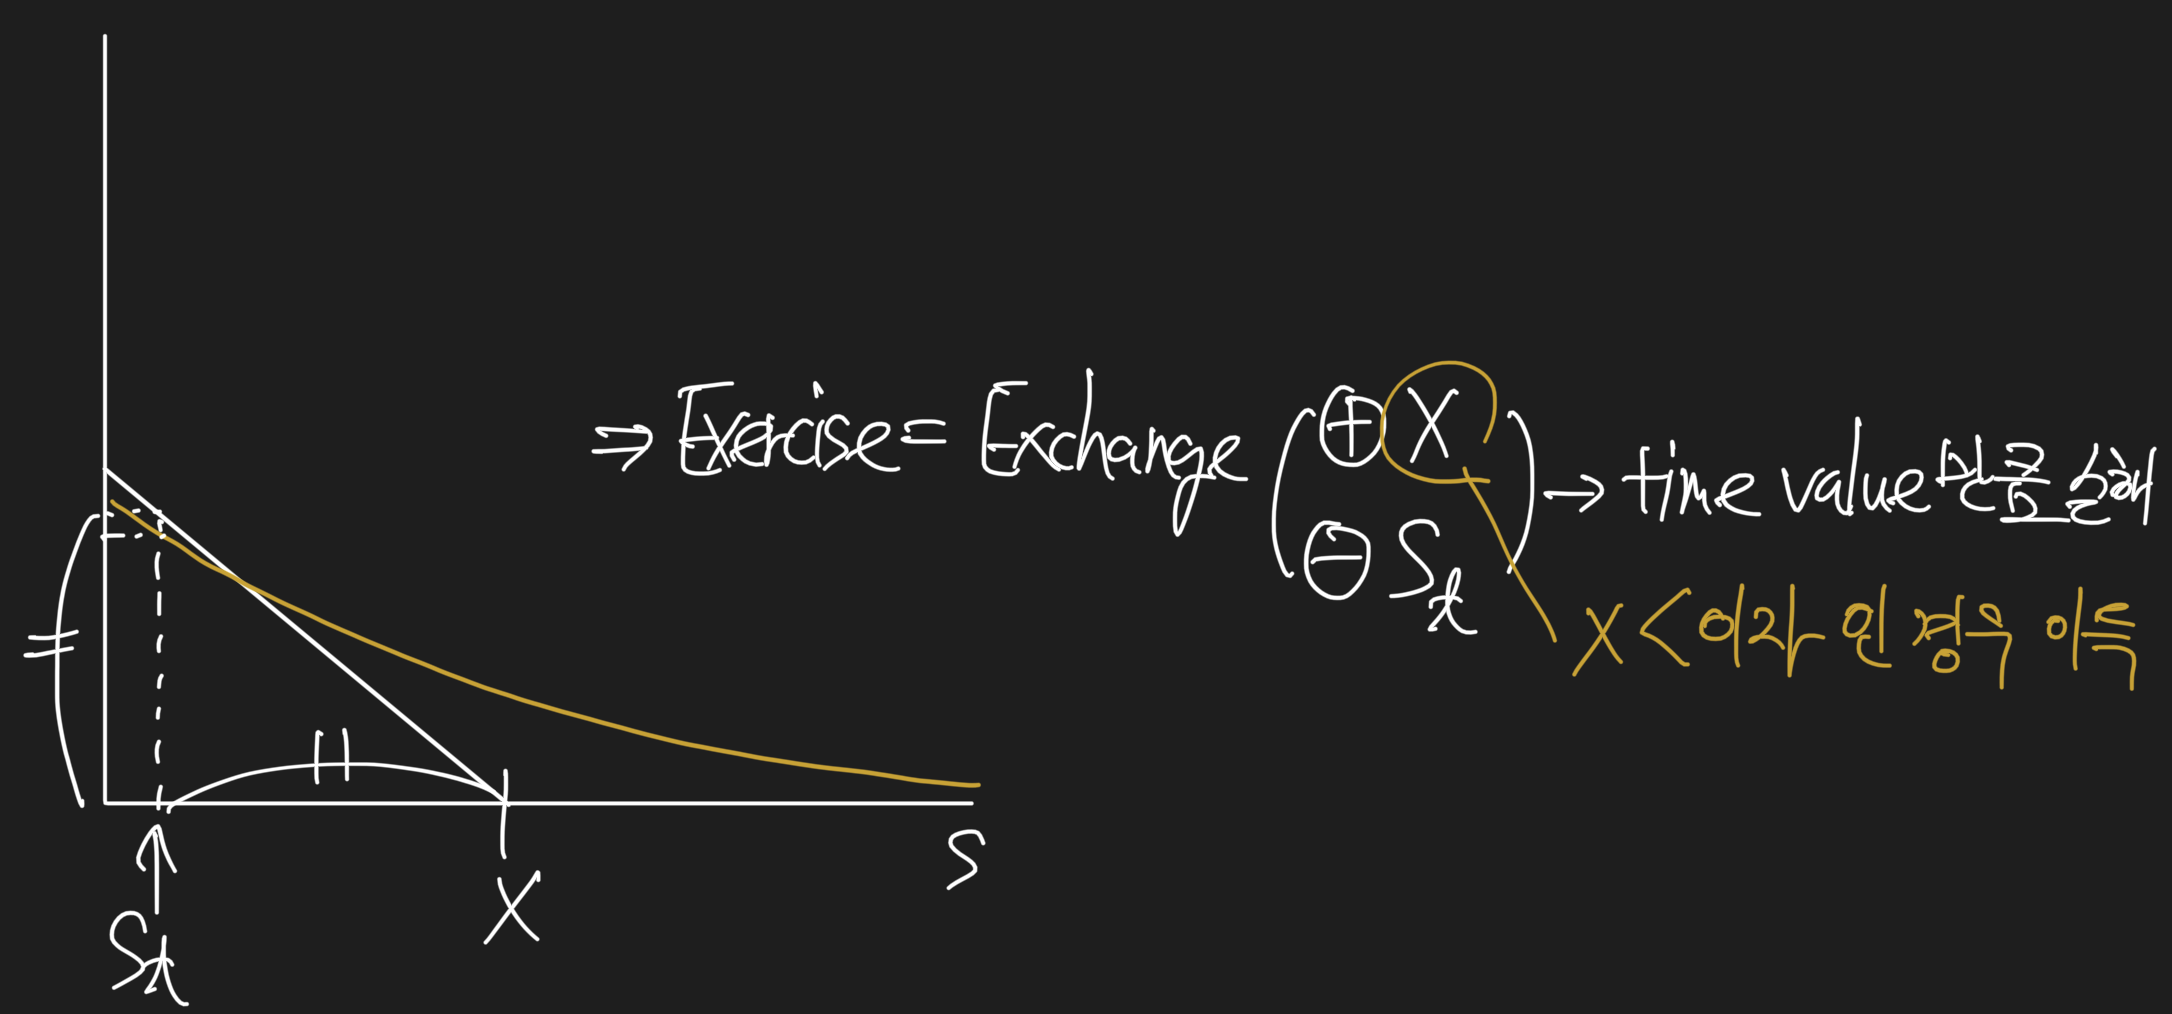 ⇒ Exercise = Exchange ( ⊕ X
⊖ S_t ) → time value 만큼 손해
X < 이자 인 경우 이득
S
X
S_t